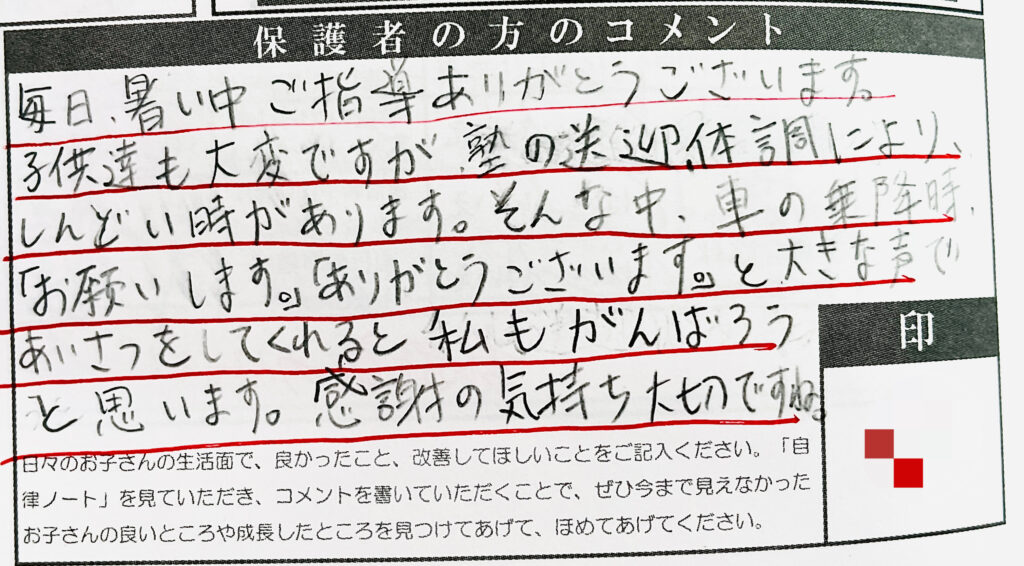 保護者の方のコメント
毎日、暑い中ご指導ありがとうございます。
子供達も大変ですが塾の送迎、体調により、
しんどい時があります。そんな中、車の乗降時、
「お願いします。」「ありがとうございます。」と大きな声で
あいさつをしてくれると私もがんばろう
と思います。感謝の気持ち大切ですね。
印
日々のお子さんの生活面で、良かったこと、改善してほしいことをご記入ください。「自
律ノート」を見ていただき、コメントを書いていただくことで、ぜひ今まで見えなかった
お子さんの良いところや成長したところを見つけてあげて、ほめてあげてください。